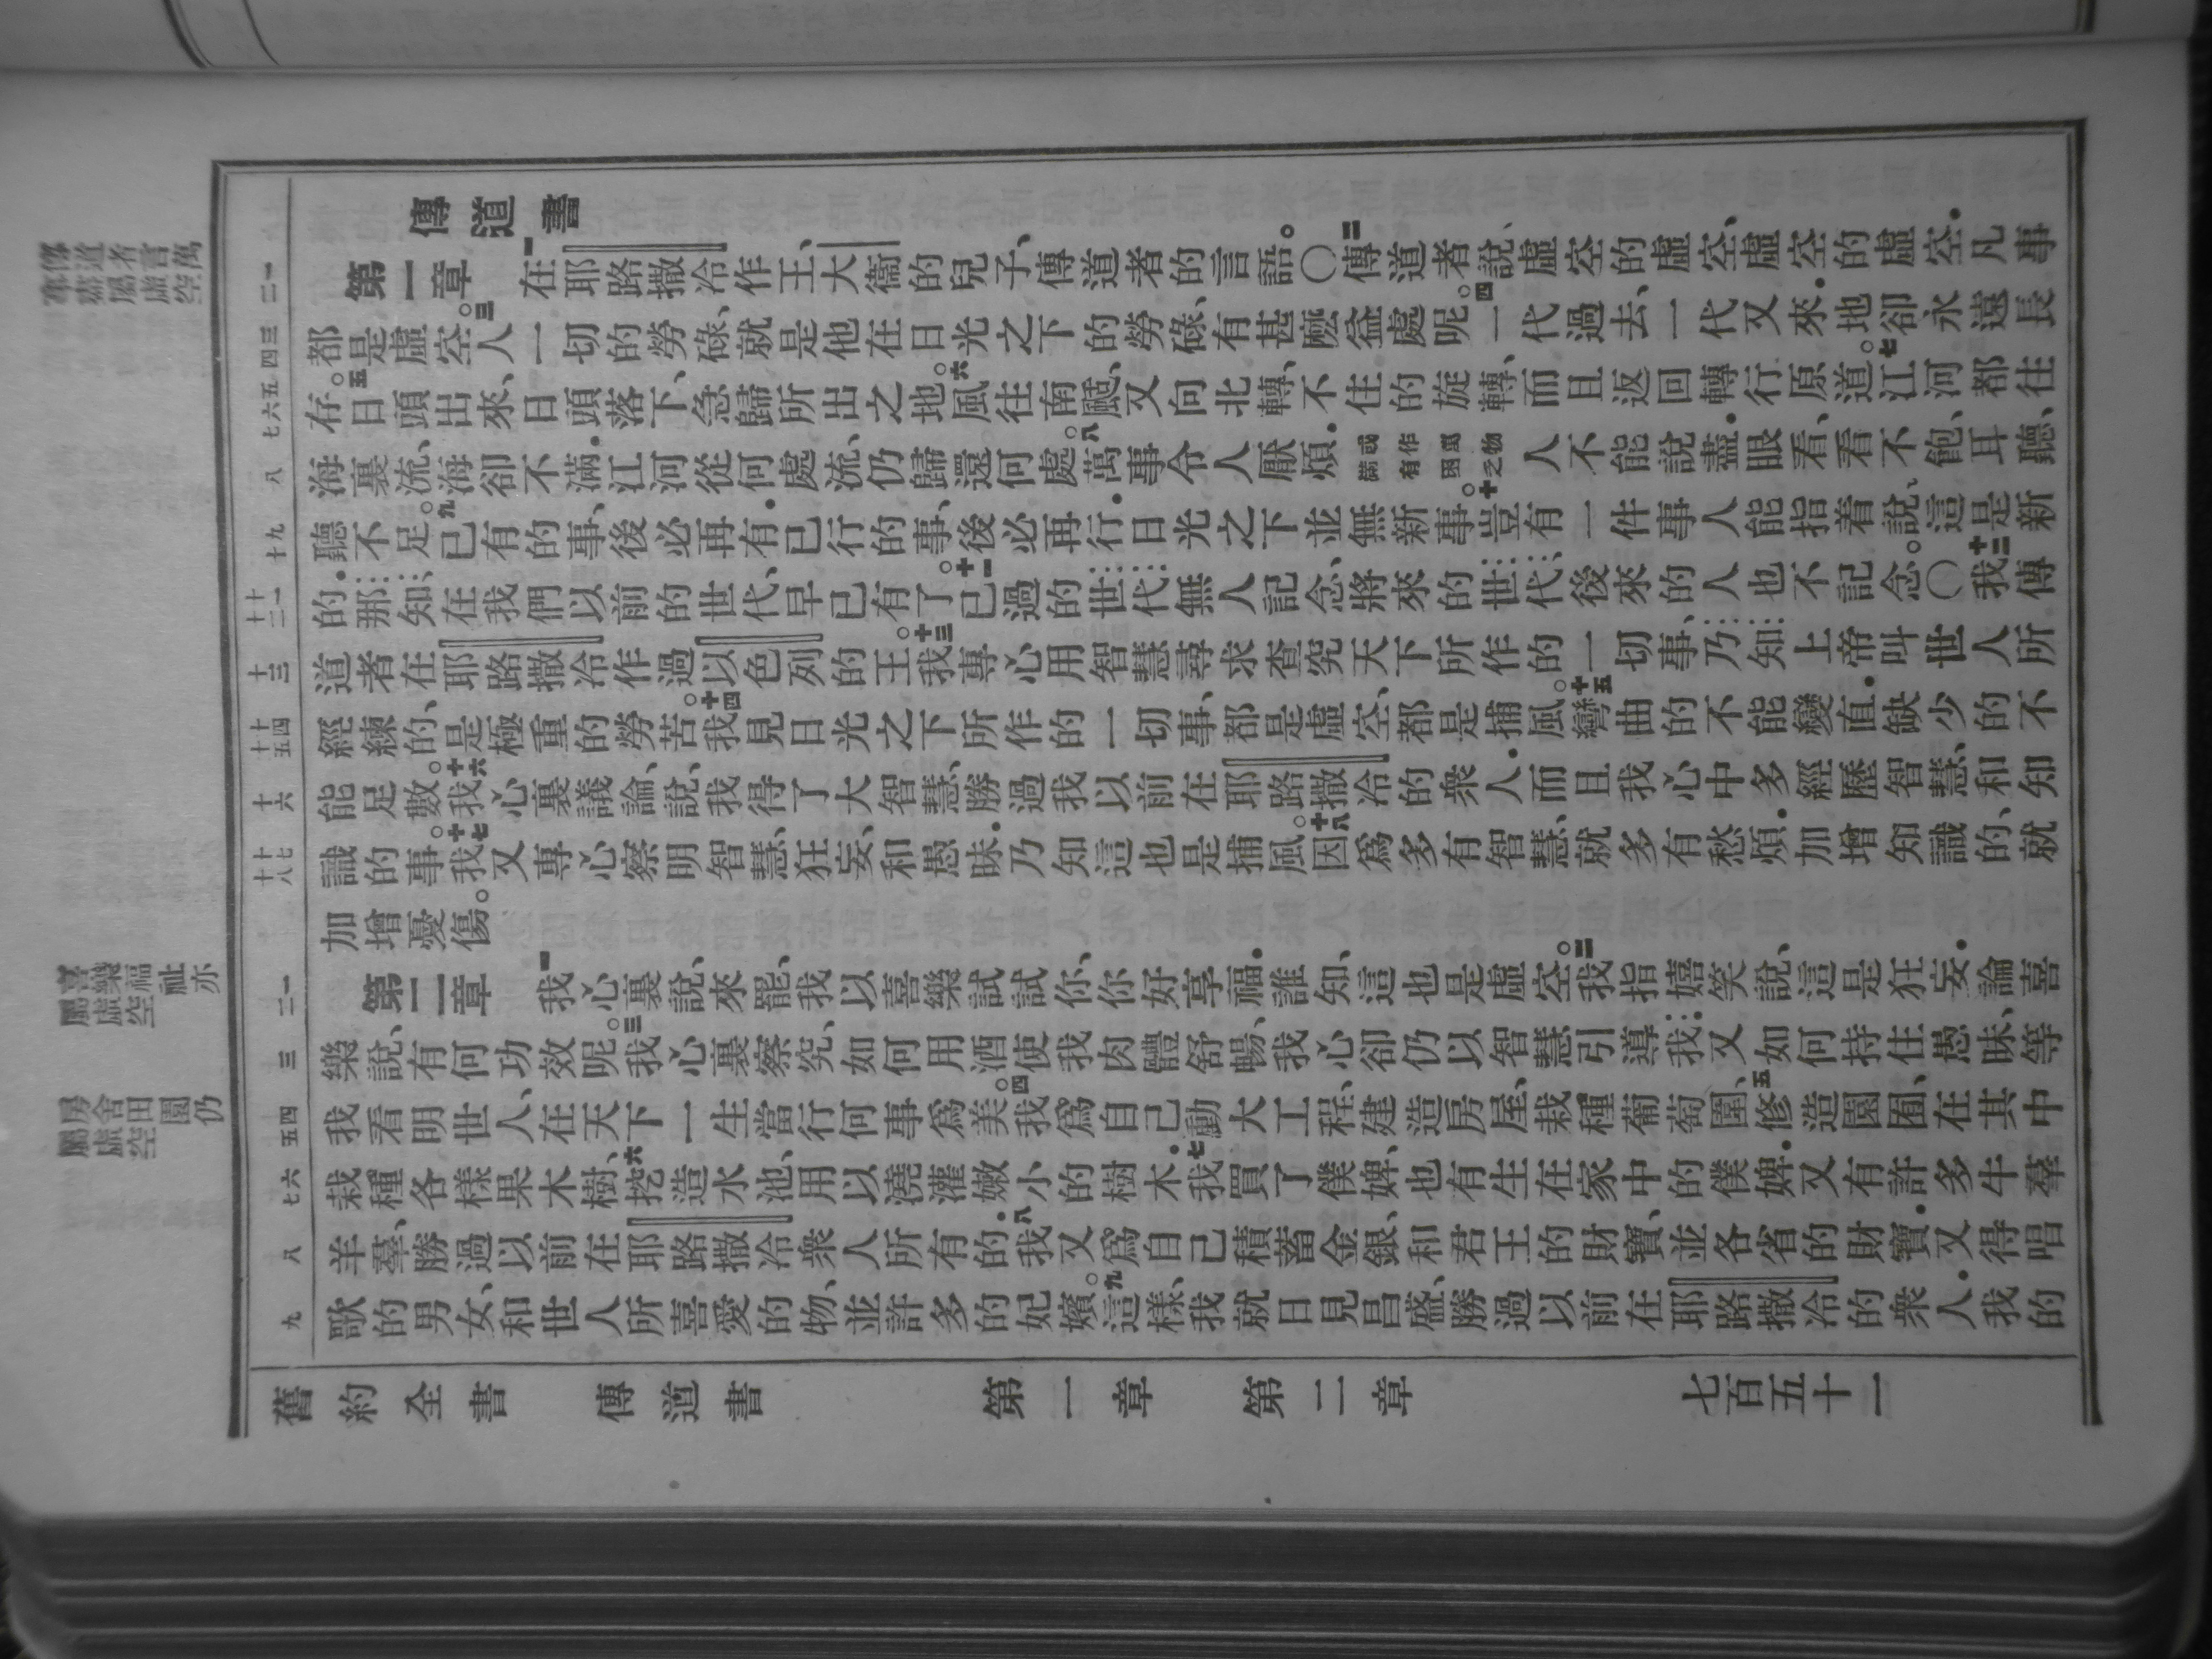 傳道書
第一章 一在耶路撒冷作王、大衞的兒子、傳道者的言語。〇二傳道者說、虛空的虛空、虛空的虛空．凡事
都是虛空。三人一切的勞碌、就是他在日光之下的勞碌、有甚麼益處呢。四一代過去、一代又來．地卻永遠長
存。五日頭出來、日頭落下、急歸所出之地。六風往南颳、又向北轉、不住的旋轉、而且返回轉行原道。七江河都往
海裏流、海卻不滿．江河從何處流、仍歸還何處。八萬事令人厭煩．或作萬物滿有困乏人不能說盡．眼看、看不飽、耳聽、
聽不足。九已有的事、後必再有．已行的事、後必再行．日光之下並無新事。十豈有一件事人能指着說、這是新
的．那知、在我們以前的世代、早已有了。十一已過的世代、無人記念、將來的世代、後來的人也不記念。〇十二我傳
道者在耶路撒冷作過以色列的王。十三我專心用智慧尋求查究天下所作的一切事、乃知上帝叫世人所
經練的、是極重的勞苦。十四我見日光之下所作的一切事、都是虛空、都是捕風。十五彎曲的不能變直．缺少的不
能足數。十六我心裏議論、說、我得了大智慧、勝過我以前在耶路撒冷的衆人．而且我心中多經歷智慧、和知
識的事。十七我又專心察明智慧、狂妄、和愚昧．乃知這也是捕風。十八因爲多有智慧、就多有愁煩．加增知識的、就
加增憂傷。
第二章 一我心裏說、來罷、我以喜樂試試你、你好享福．誰知、這也是虛空。二我指嬉笑說、這是狂妄．論喜
樂說、有何功效呢。三我心裏察究、如何用酒使我肉體舒暢、我心卻仍以智慧引導我．又如何持住愚昧、等
我看明世人、在天下一生當行何事爲美。四我爲自己動大工程、建造房屋、栽種葡萄園、五修造園囿、在其中
栽種各樣果木樹、六挖造水池、用以澆灌嫩小的樹木．七我買了僕婢、也有生在家中的僕婢．又有許多牛羣
羊羣、勝過以前在耶路撒冷衆人所有的．八我又爲自己積蓄金銀、和君王的財寶、並各省的財寶．又得唱
歌的男女、和世人所喜愛的物、並許多的妃嬪。九這樣、我就日見昌盛、勝過以前在耶路撒冷的衆人．我的
舊約全書 傳道書 第一章 第二章 七百五十一
傳道者言萬
屬虛空
喜樂福祉亦
屬虛空
房舍田園仍
屬虛空